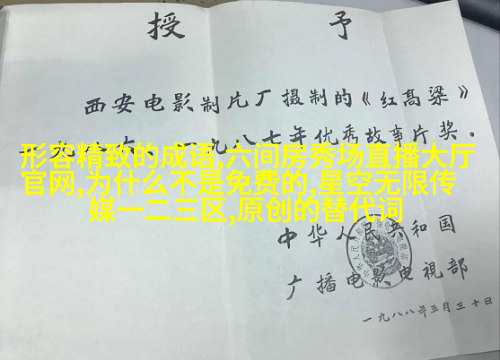 授 予
西安电影制片厂摄制的《红高粱》
一九八六、一九八七年优秀故事片奖。
形容精致的成语,六间房秀场直播大厅
官网,为什么不是免费的,星空无限传
媒一二三区,原创的替代词
中华人民共和国
广播电影电视部
一九八八年三月三十日